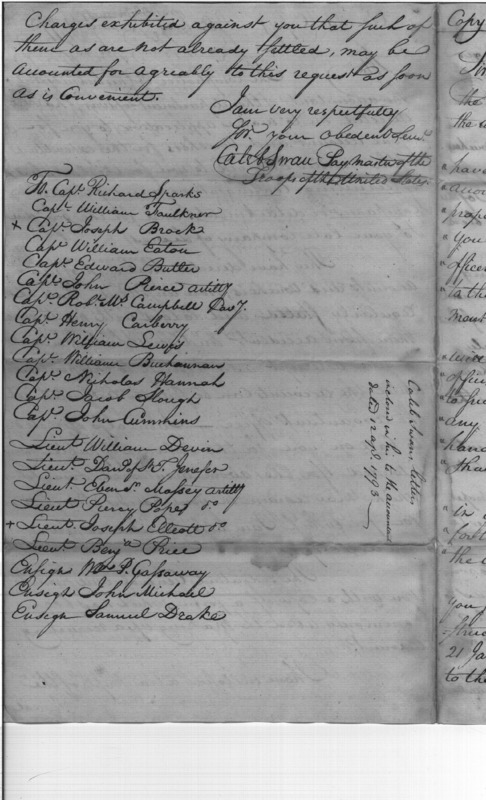 Charges exhibited against you that such of
them as are not already settled, may be
accounted for agreeably to this request as soon
as is Convenient.
I am very respectfully
your Obedent Servt.
Caleb Swan Paymaster of the
Troops of the United States
To. Capt. Richard Sparks
Capt. William Faulkner
+ Capt. Joseph Brock
Capt William Eaton
Capt. Edward Butler
Capt. John Pierce artilly
Capt. Robt. Mc. Campbell Cavy.
Capt. Henry Carberry
Capt. William Lewis
Capt. William Buchannan
Capt. Nicholas Hannah
Capt. Jacob Slough
Capt. John Cummins
Lieut William Devin
Lieut.
Lieut Ebenr. Massey artilly
Lieut Piercy Pope do
+ Lieut. Joseph Elliott do
Lieut. Benja. Price
Ensign Gassaway
Ensign John Michael
Ensign Samuel Drake
Caleb Swans letter
inclosed in his to the accountant
dated 12 apl. 1793
Copy
the
have
you
officer
to the
any
hand
that
in
the
you
21 Ja
to the